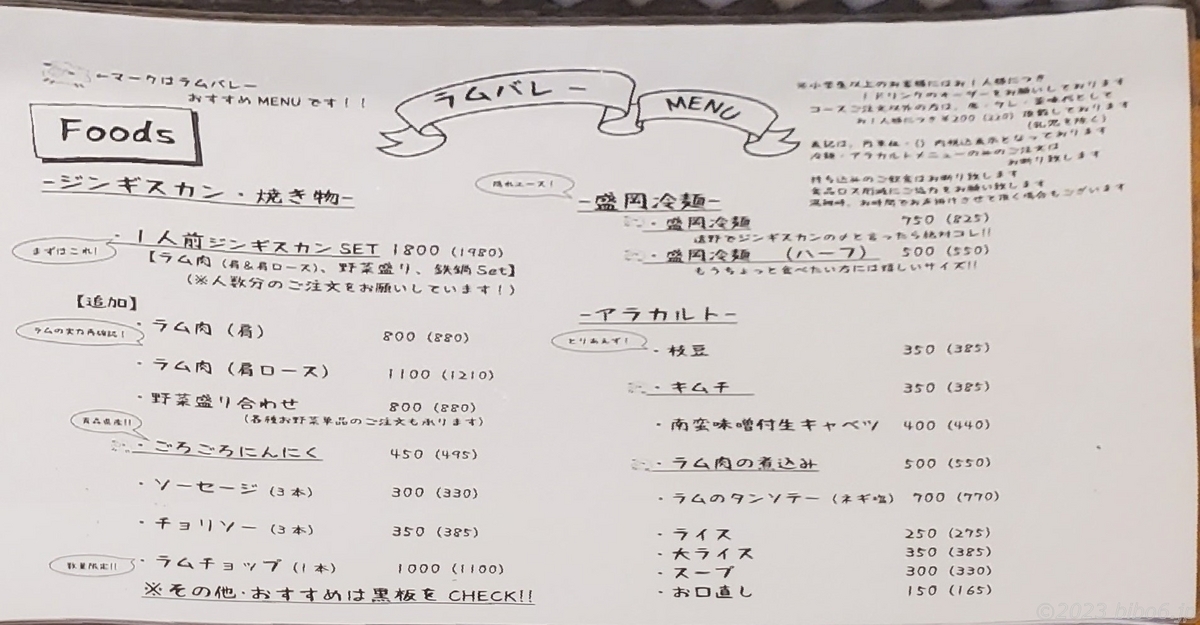 ←マークはラムバレー
おすすめMENUです！！
Foods
ラムバレー
MENU
※小学生以上のお客様にはお1人様につき
1ドリンクのオーダーをお願いしております
コースご注文以外の方は、席・タレ・薬味代として
お1人様につき￥200（220）頂戴しております
（乳児を除く）
表記は、円単位・（）内税込表示となっております
冷麺・アラカルトメニューのみのご注文は
お断り致します
持ち込みのご飲食はお断り致します
食品ロス削減にご協力をお願い致します
混雑時、お時間でお声掛けさせて頂く場合もございます
-ジンギスカン・焼き物-
まずはこれ！
・1人前ジンギスカンSET 1800（1980）
【ラム肉（肩&肩ロース）、野菜盛り、鉄鍋Set】
（※人数分のご注文をお願いしています！）
【追加】
ラムの実力再確認！
・ラム肉（肩） 800（880）
・ラム肉（肩ロース） 1100（1210）
・野菜盛り合わせ 800（880）
（各種お野菜単品のご注文も承ります）
青森県産!!
・ごろごろにんにく 450（495）
・ソーセージ（3本） 300（330）
・チョリソー（3本） 350（385）
数量限定!!
・ラムチョップ（1本） 1000（1100）
※その他・おすすめは黒板をCHECK!!
隠れエース！
-盛岡冷麺-
・盛岡冷麺 750（825）
遠野でジンギスカンの〆と言ったら絶対コレ!!
・盛岡冷麺（ハーフ） 500（550）
もうちょっと食べたい方には嬉しいサイズ!!
-アラカルト-
とりあえず！
・枝豆 350（385）
・キムチ 350（385）
・南蛮味噌付生キャベツ 400（440）
・ラム肉の煮込み 500（550）
・ラムのタンソテー（ネギ塩） 700（770）
・ライス 250（275）
・大ライス 350（385）
・スープ 300（330）
・お口直し 150（165）